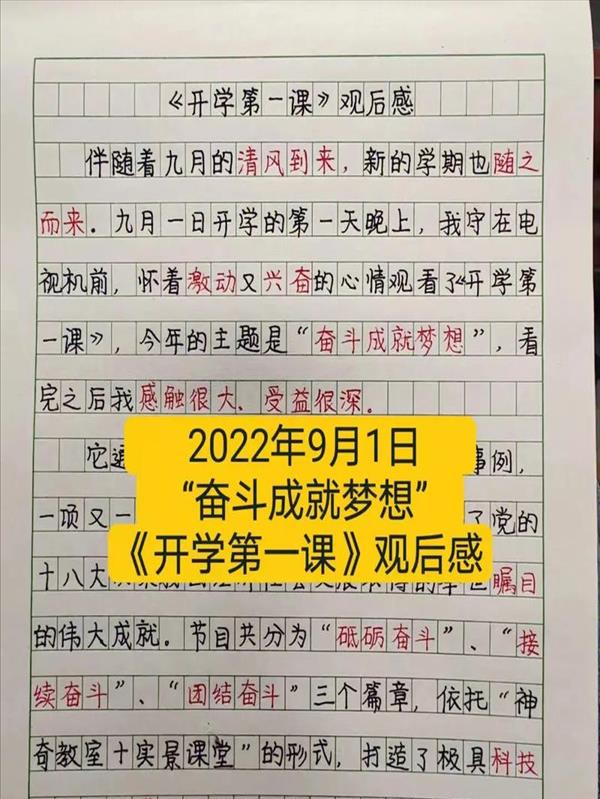 《开学第一课》观后感
伴随着九月的清风到来，新的学期也随之
而来。九月一日开学的第一天晚上，我守在电
视机前，怀着激动又兴奋的心情观看了《开学第
一课》，今年的主题是“奋斗成就梦想”，看
完之后我感触很大、受益很深。
它 事例，
一项又一 了党的
十八大 瞩目
2022年9月1日
“奋斗成就梦想”
《开学第一课》观后感
的伟大成就。节目共分为“砥砺奋斗”、“接
续奋斗”、“团结奋斗”三个篇章，依托“神
奇教室十实景课堂”的形式，打造了极具科技